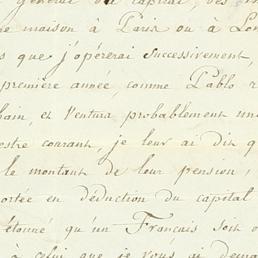 général du capital, des in
ne maison à Paris ou à Lon
s que j'opérerai successivement,
première année, comme Pablo r
hain, et Ventura probablement un
estre courant, je leur ai dit q
le montant de leur pension,
ortée en déduction du capital
étonné qu'un Français soit o
à celui que je vous ai dema